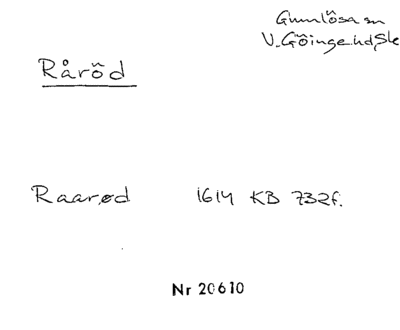 Gumlösa sn
V. Göinge hd, Sk
Råröd
Raarød 1614 KB 732f.
Nr 20610